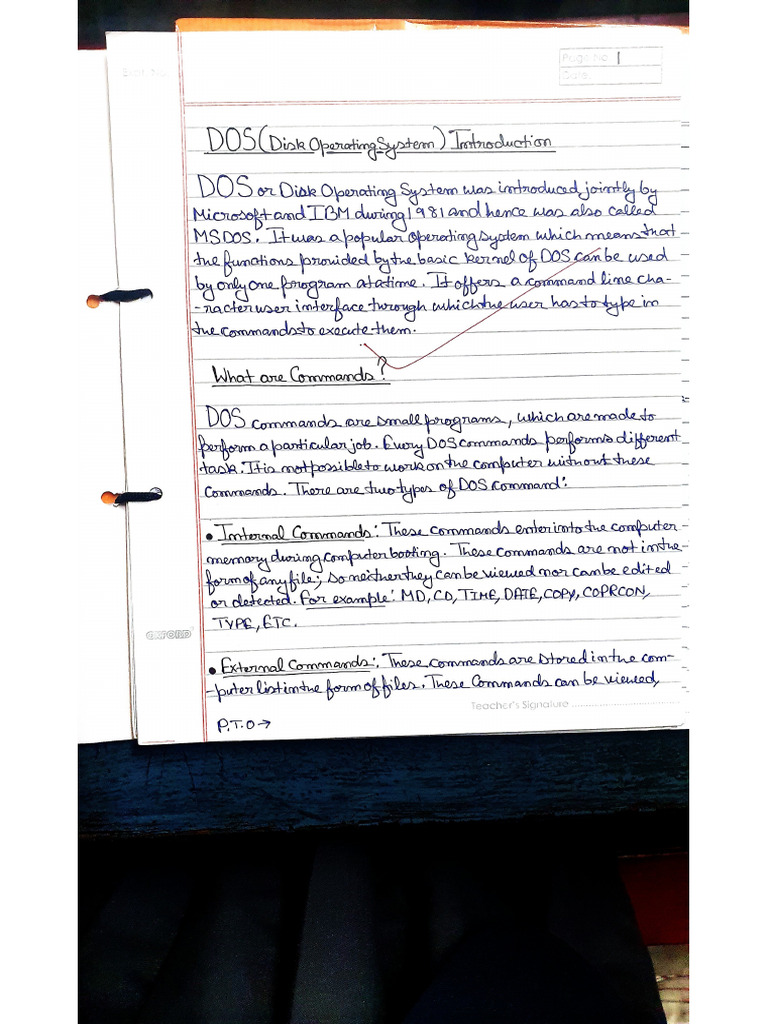 Expt. No.
Page No. 1
Date:
DOS (Disk Operating System) Introduction
DOS or Disk Operating System was introduced jointly by
Microsoft and IBM during 1981 and hence was also called
MSDOS. It was a popular operating system which means that
the functions provided by the basic kernel of DOS can be used
by only one program at a time. It offers a command line cha-
-racter user interface through which the user has to type in
the commands to execute them.
What are Commands?
DOS commands are small programs, which are made to
perform a particular job. Every DOS commands performs different
task. It is not possible to work on the computer without these
commands. There are two types of DOS command:
• Internal Commands: These commands enter into the computer
memory during computer booting. These commands are not in the
form of any file; so neither they can be viewed nor can be edited
or detected. For example: MD, CD, TIME, DATE, COPY, COPRCON,
TYPE, ETC.
OXFORD
• External Commands: These commands are stored in the com-
-puter list in the form of files. These Commands can be viewed,
Teacher's Signature
P.T.O →